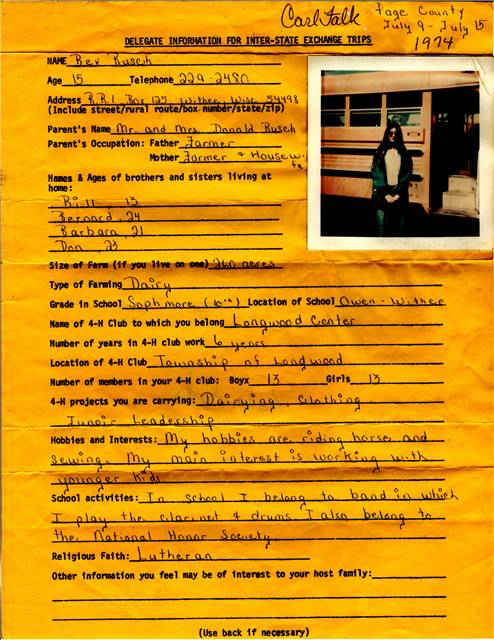 Carl Falk
Page County
July 9 - July 15
1974
DELEGATE INFORMATION FOR INTER-STATE EXCHANGE TRIPS
NAME Bev Rusch
Age 15 Telephone 229-2480
Address R.R.1 Box 125 Withee, Wisc 54498
(Include street/rural route/box number/state/zip)
Parent's Name Mr. and Mrs. Donald Rusch
Parent's Occupation: Father Farmer
Mother Farmer & Housewife
Names & Ages of brothers and sisters living at
home:
Bill, 13
Bernard, 24
Barbara, 21
Don, 23
Size of Farm (if you live on one) 260 acres
Type of Farming Dairy
Grade in School Sophmore (10th) Location of School Owen-Withee
Name of 4-H Club to which you belong Longwood Center
Number of years in 4-H club work 6 years
Location of 4-H Club Township of Longwood
Number of members in your 4-H club: Boyx 13 Girls 13
4-H projects you are carrying: Dairying, Clothing
Junoir Leadership
Hobbies and Interests: My hobbies are riding horse and
sewing. My main interest is working with
younger kids
School activities: In school I belong to band in which
I play the clarinet & drums. I also belong to
the National Honor Society
Religious Faith: Lutheran
Other information you feel may be of interest to your host family:
(Use back if necessary)